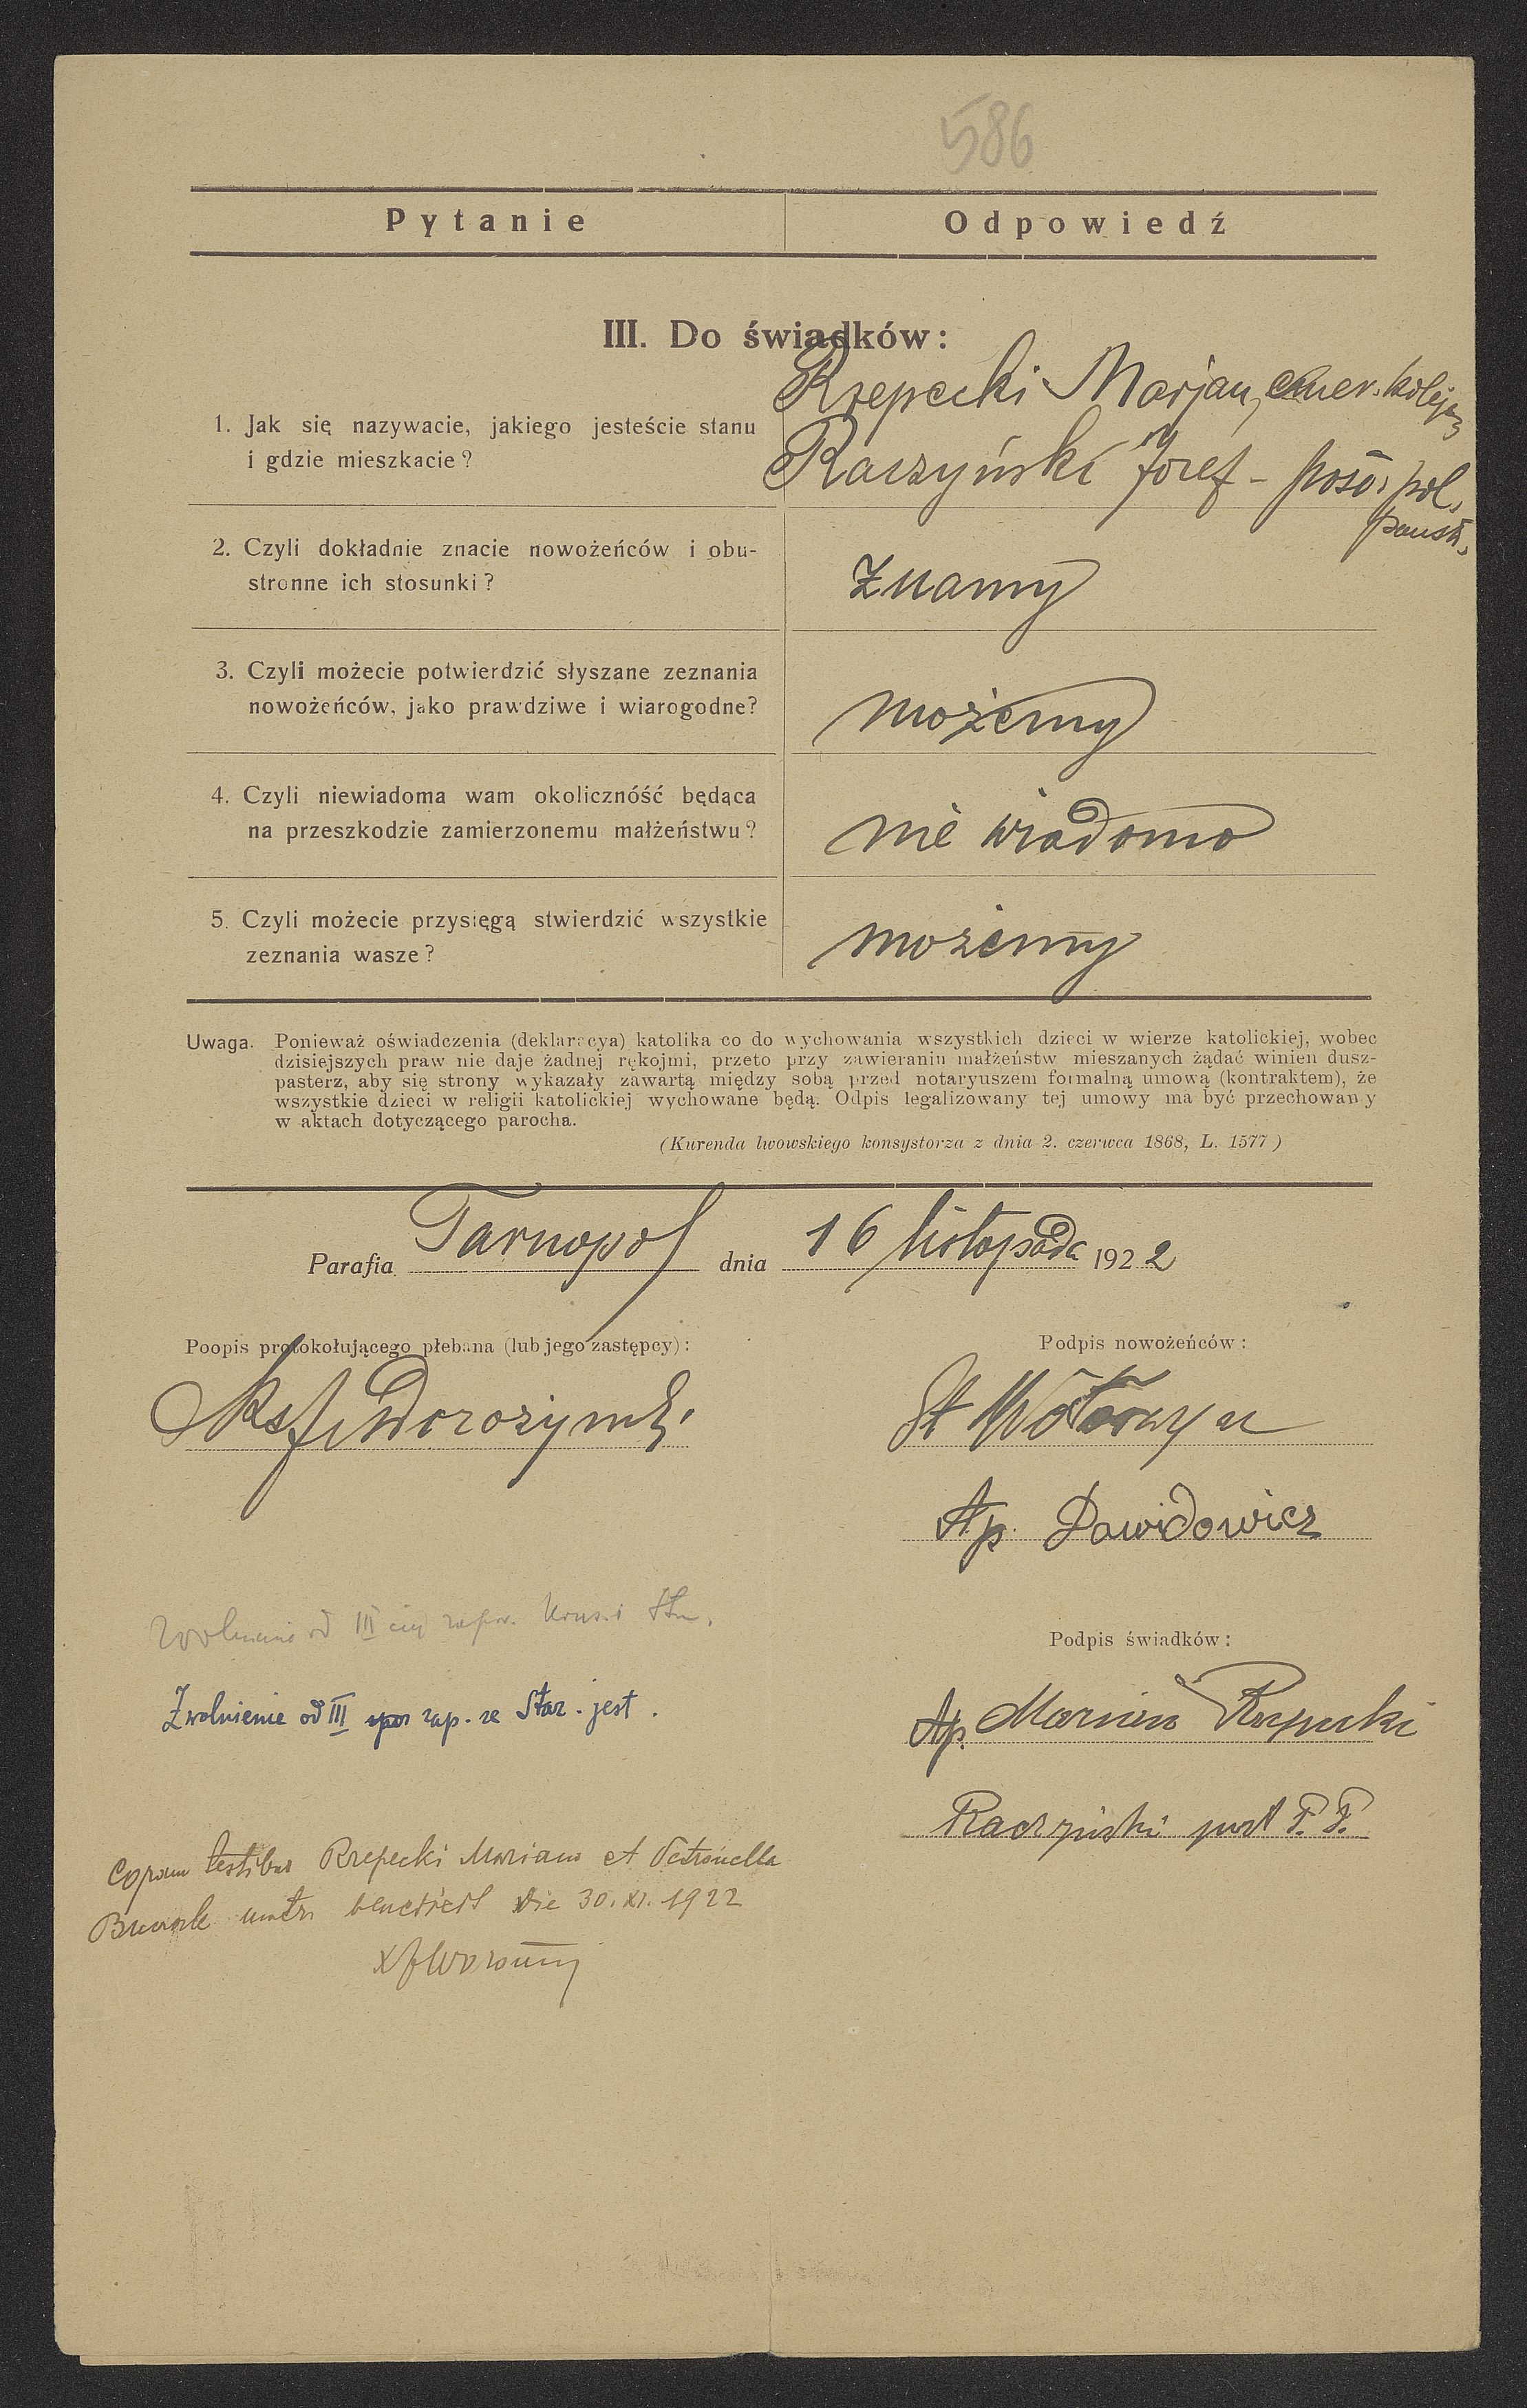 586
Pytanie Odpowiedź
III. Do świadków:
Rzepecki Marjan, emer. kolej.
1. Jak się nazywacie, jakiego jesteście stanu
i gdzie mieszkacie?
Raczyński Józef - post. pol.
państ.
2. Czyli dokładnie znacie nowożeńców i obu-
stronne ich stosunki?
Znamy
3. Czyli możecie potwierdzić słyszane zeznania
nowożeńców, jako prawdziwe i wiarogodne?
możemy
4. Czyli niewiadoma wam okolicznóść będąca
na przeszkodzie zamierzonemu małżeństwu?
nie wiadomo
5. Czyli możecie przysięgą stwierdzić wszystkie
zeznania wasze?
możemy
Uwaga. Ponieważ oświadczenia (deklaracya) katolika co do wychowania wszystkich dzieci w wierze katolickiej, wobec
dzisiejszych praw nie daje żadnej rękojmi, przeto przy zawieraniu małżeństw mieszanych żądać winien dusz-
pasterz, aby się strony wykazały zawartą między sobą przed notaryuszem formalną umową (kontraktem), że
wszystkie dzieci w religii katolickiej wychowane będą. Odpis legalizowany tej umowy ma być przechowany
w aktach dotyczącego parocha.
(Kurenda lwowskiego konsystorza z dnia 2. czerwca 1868, L. 1577)
Parafia Tarnopol dnia 16 listopada 1922
Poopis protokołującego plebana (lub jego zastępcy):
Podpis nowożeńców:
Ap. Dawidowicz
Zwolnienie od III
Podpis świadków:
Zwolnienie od III zap. ze Star. jest.
Ap. Marian Rzepecki
Raczyński post P. P.
Coram testibus Rzepecki Mariano et Petronella
benedixit die 30.XI.1922